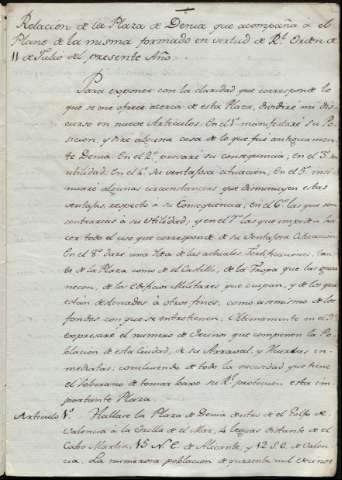 Relación de la Plaza de Denia que acompaña á el
Plano de la misma formado en virtud de Rl. Orden de
11 de Julio del presente Año.
Para exponer con la claridad que corresponde lo
que se me ofrece acerca de esta Plaza, dividiré mi dis-
curso en nueve Articulos. En el 1º manifestaré su Po-
sicion, y diré alguna cosa de lo que fué antiguamen-
te Denia. En el 2º tocaré su consequencia; en el 3º su
utilidad. En el 4º su ventajosa situacion. En el 5º insi-
nuaré algunas circunstancias que disminuyen estas
ventajas, respecto á su Consequencia; en el 6º las que son
contrarias á su Utilidad; y en el 7º las que impiden ha-
cer todo el uso que corresponde de su ventajosa situacion
En el 8º daré una Idea de las actuales Fortificaciones, tan-
to de la Plaza como de el Castillo, de la Tropa que las guar-
necen, de los Edificios Militares que ocupan, y de los que
estan destinados á otros fines, como asimismo de los
fondos con que se entretienen. Ultimamente en el 9º
expresaré el numero de Vecinos que componen la Po-
blacion de esta Ciudad, de su Arraval, y Huertas in-
mediatas; concluiendo de todo la necesidad que tiene
el Soberano de tomar baxo su Rl. proteccion esta im-
portante Plaza.
Articulo 1º. Hallase la Plaza de Denia dentro de el Golfo de
Valencia á la Orilla de el Mar, 4 leguas distante de el
Cabo Martin, 15 N.E. de Alicante, y 12 S.E. de Valen-
cia. La numerosa poblacion de quarenta mil vecinos